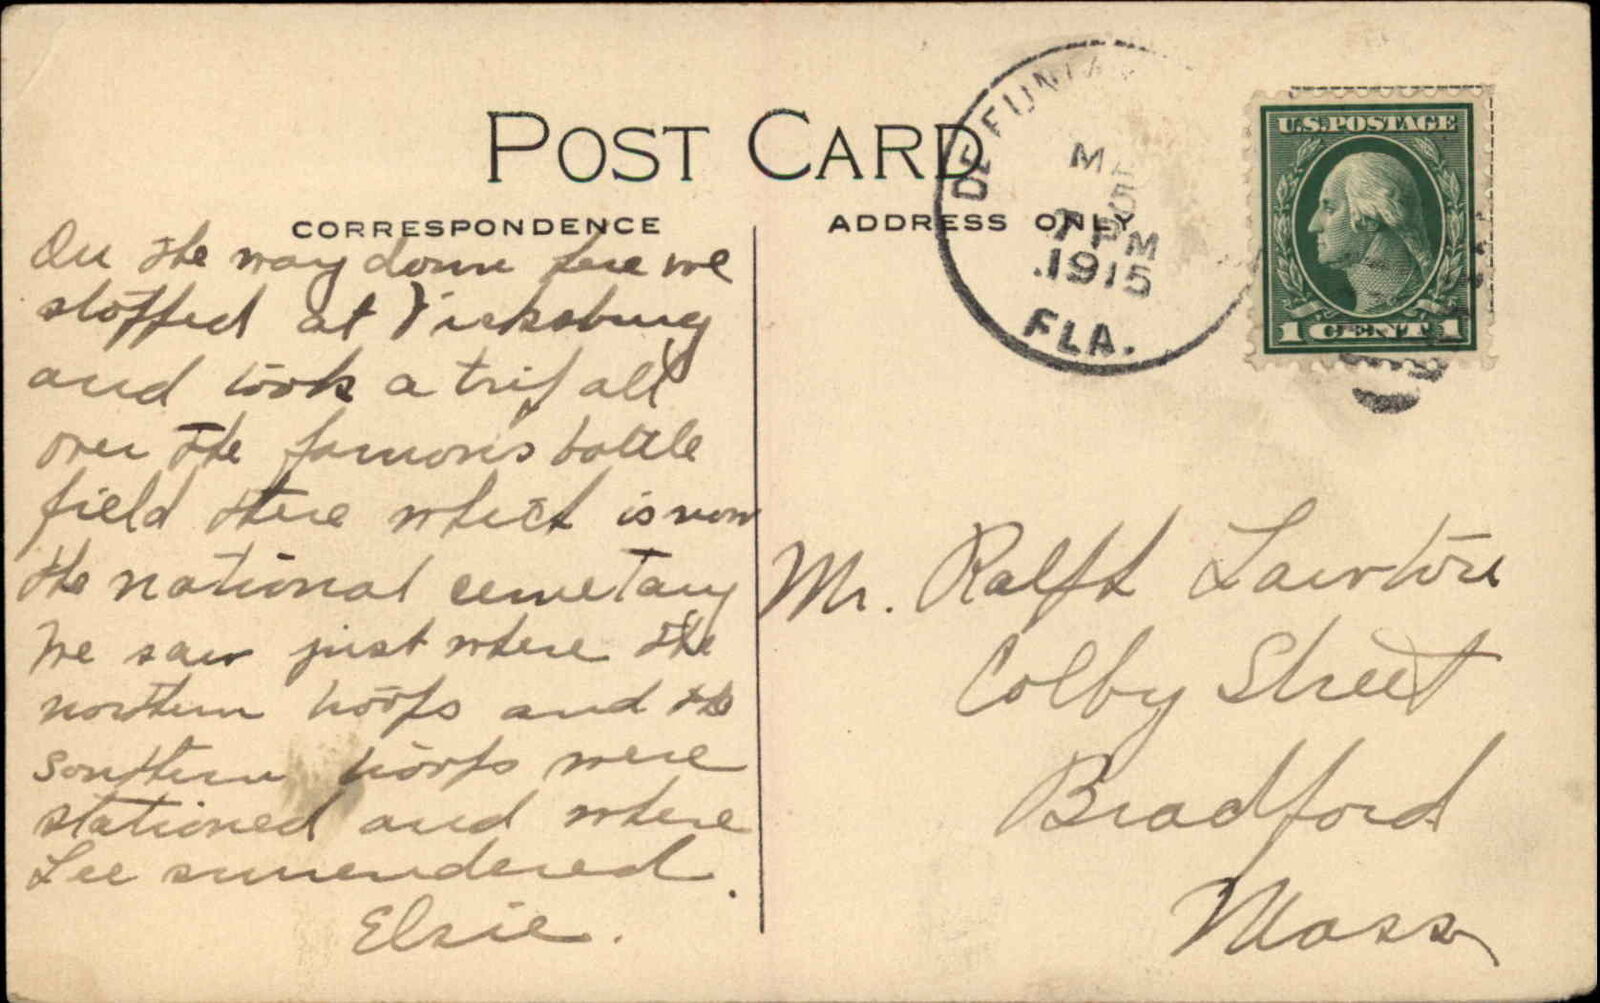 POST CARD
CORRESPONDENCE
ADDRESS ONLY
DE FUNIAK
7 PM
1915
FLA.
U.S. POSTAGE
1 CENT 1
On the way down here we
stopped at Vicksburg
and took a trip all
over the famous battle
field there which is now
the national cemetary
We saw just where the
northern troops and the
southern troops were
stationed and where
Lee surrendered.
Elsie.
Mr. Ralph Lawton
Colby Street
Bradford
Mass